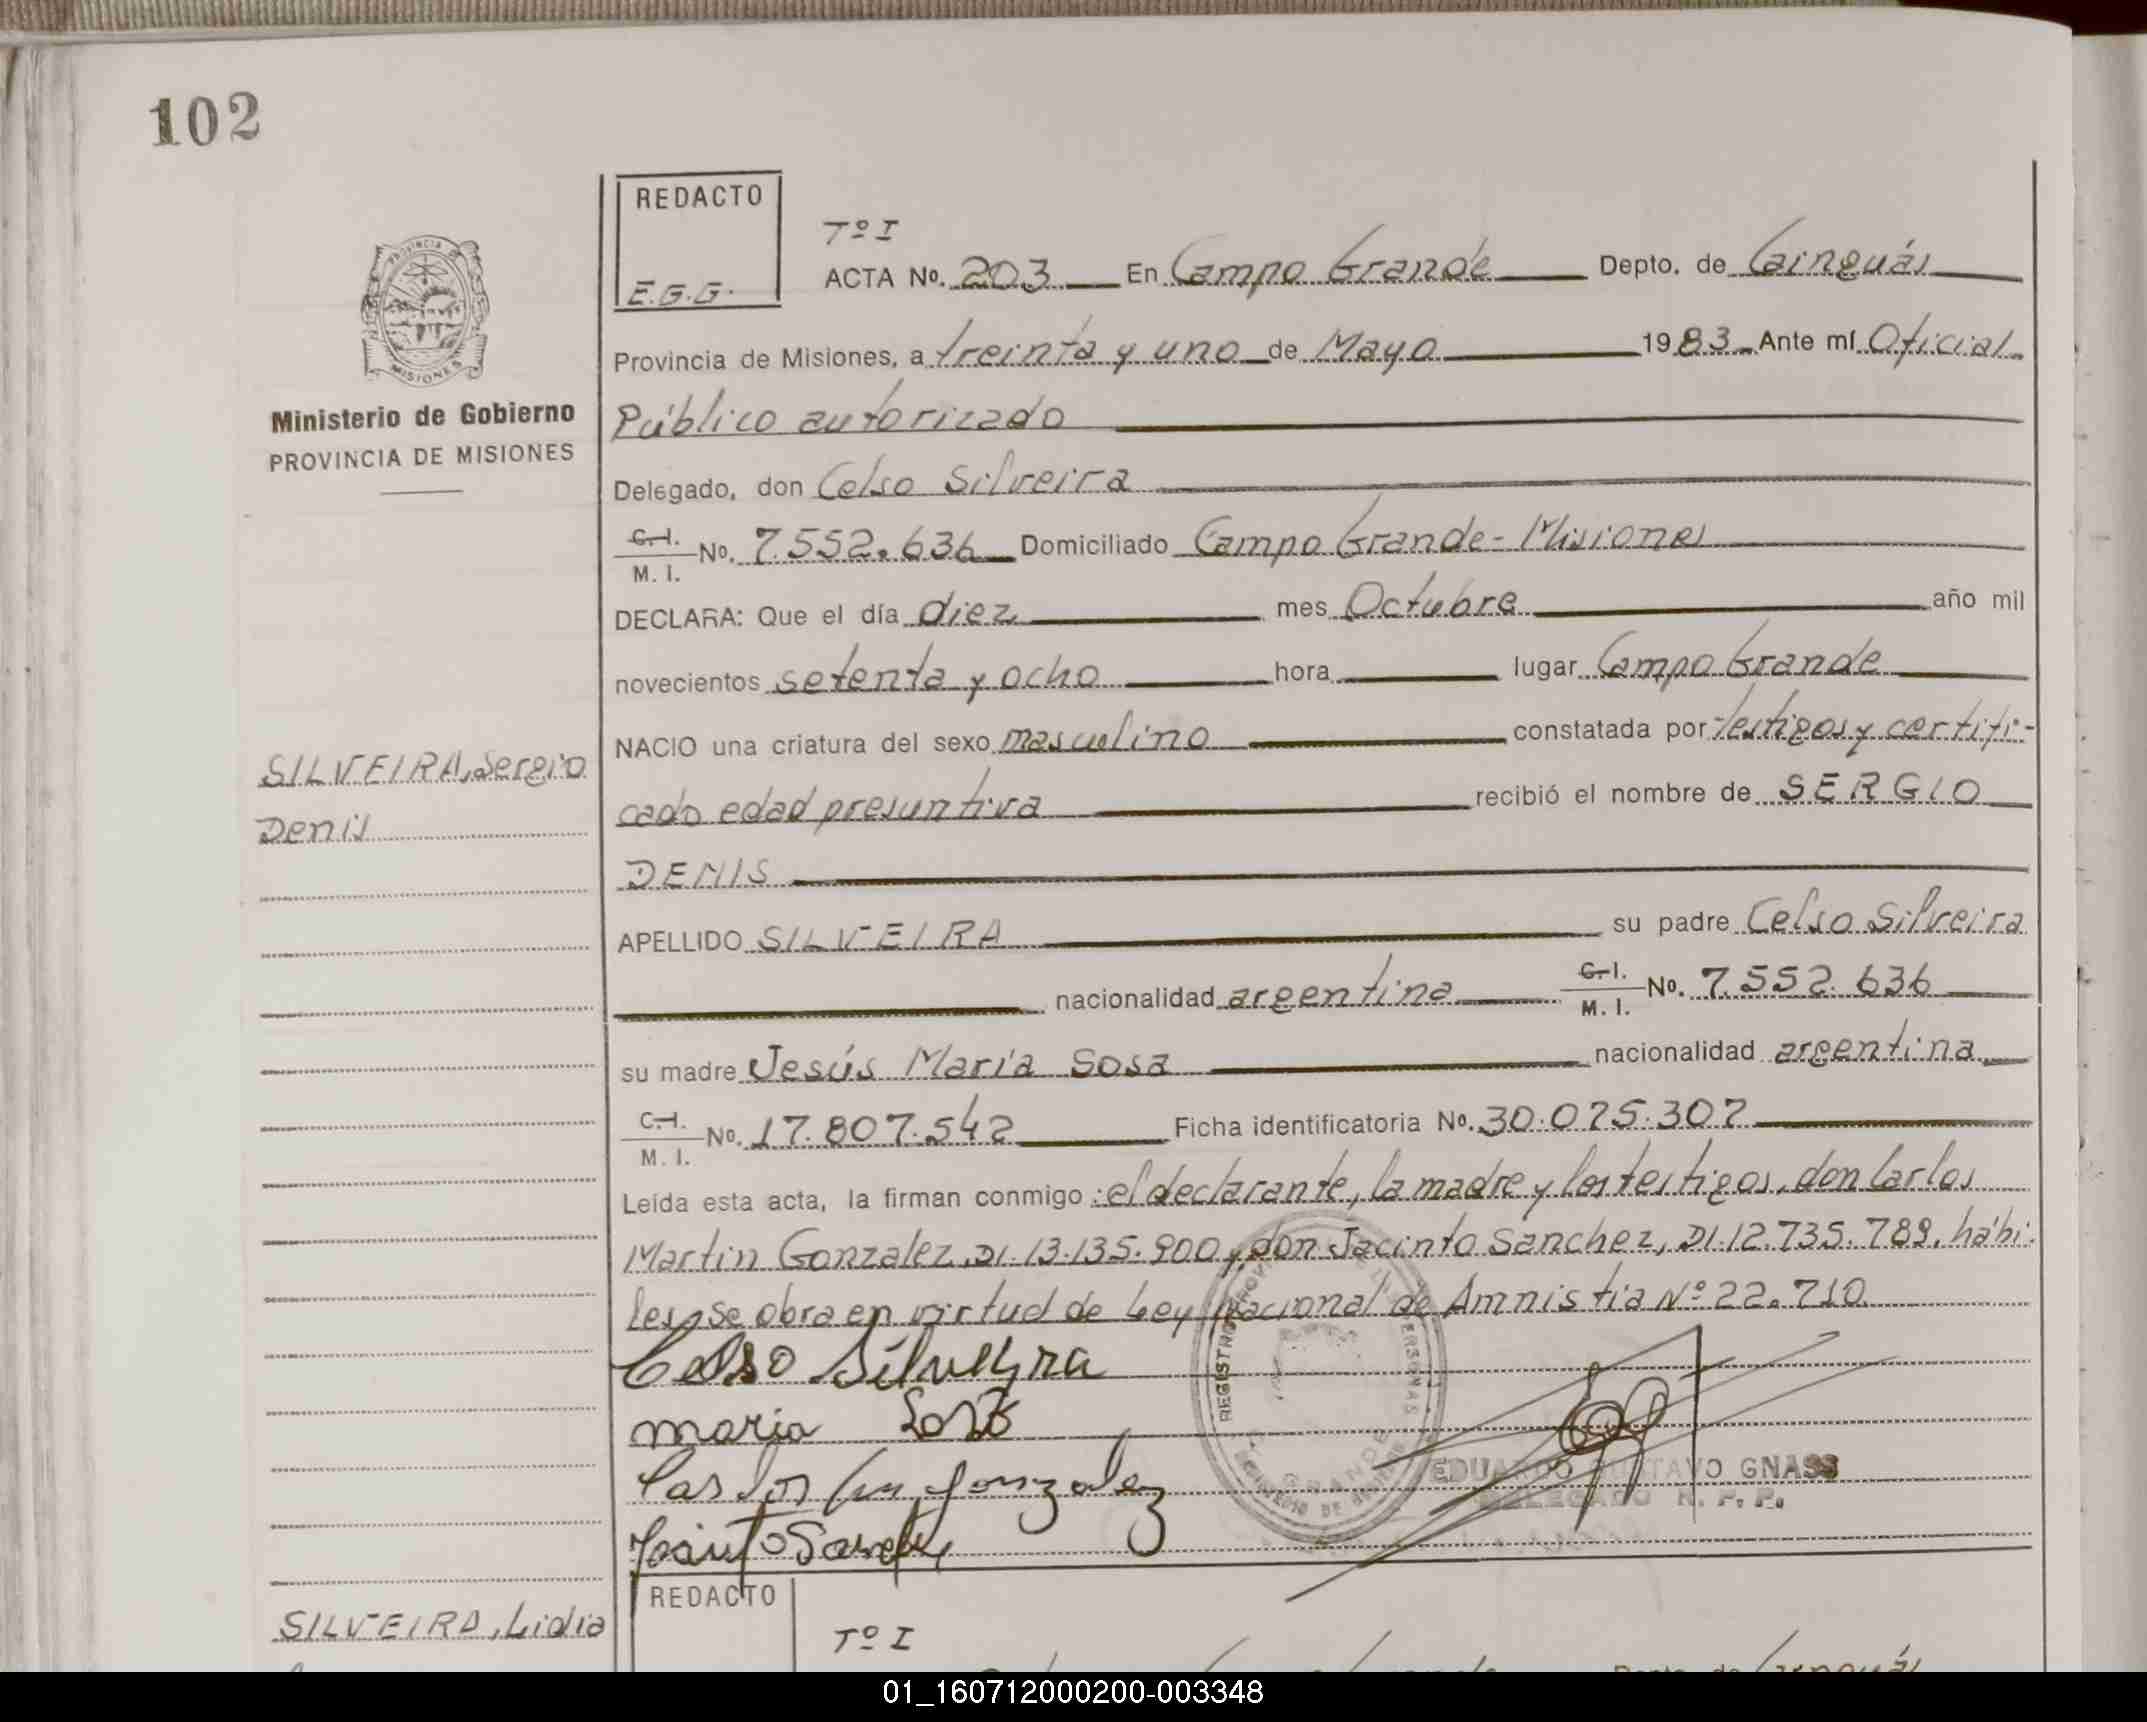 102
REDACTO
E.G.G.
Tº I
ACTA Nº. 203 En Campo Grande Depto. de Cainguás
PROVINCIA DE
MISIONES
Provincia de Misiones, a treinta y uno de Mayo 1983 Ante mí Oficial
Ministerio de Gobierno
PROVINCIA DE MISIONES
Público autorizado
Delegado, don Celso Silveira
C.I. M.I. Nº. 7.552.636 Domiciliado Campo Grande - Misiones
DECLARA: Que el día diez mes Octubre año mil
novecientos setenta y ocho hora lugar Campo Grande
NACIO una criatura del sexo masculino constatada por testigos y certifi-
SILVEIRA, Sergio
Denis
cado edad presuntiva recibió el nombre de SERGIO
DENIS
APELLIDO SILVEIRA su padre Celso Silveira
nacionalidad argentina C.I. M.I. Nº. 7.552.636
su madre Jesús María Sosa nacionalidad argentina
C.I. M.I. Nº. 17.807.542 Ficha identificatoria Nº. 30.075.307
Leída esta acta, la firman conmigo: el declarante, la madre y los testigos, don Carlos
Martin Gonzalez, DI. 13.135.900 y don Jacinto Sanchez, DI. 12.735.789, hábi-
les, se obra en virtud de Ley Nacional de Amnistia Nº 22.710.
Celso Silveyra
maria Sosa
Carlos M. Gonzalez
Jacinto Sanchez
EDUARDO GUSTAVO GNASS
DELEGADO R. P. P.
REDACTO
Tº I
SILVEIRA, Lidia
01_160712000200-003348